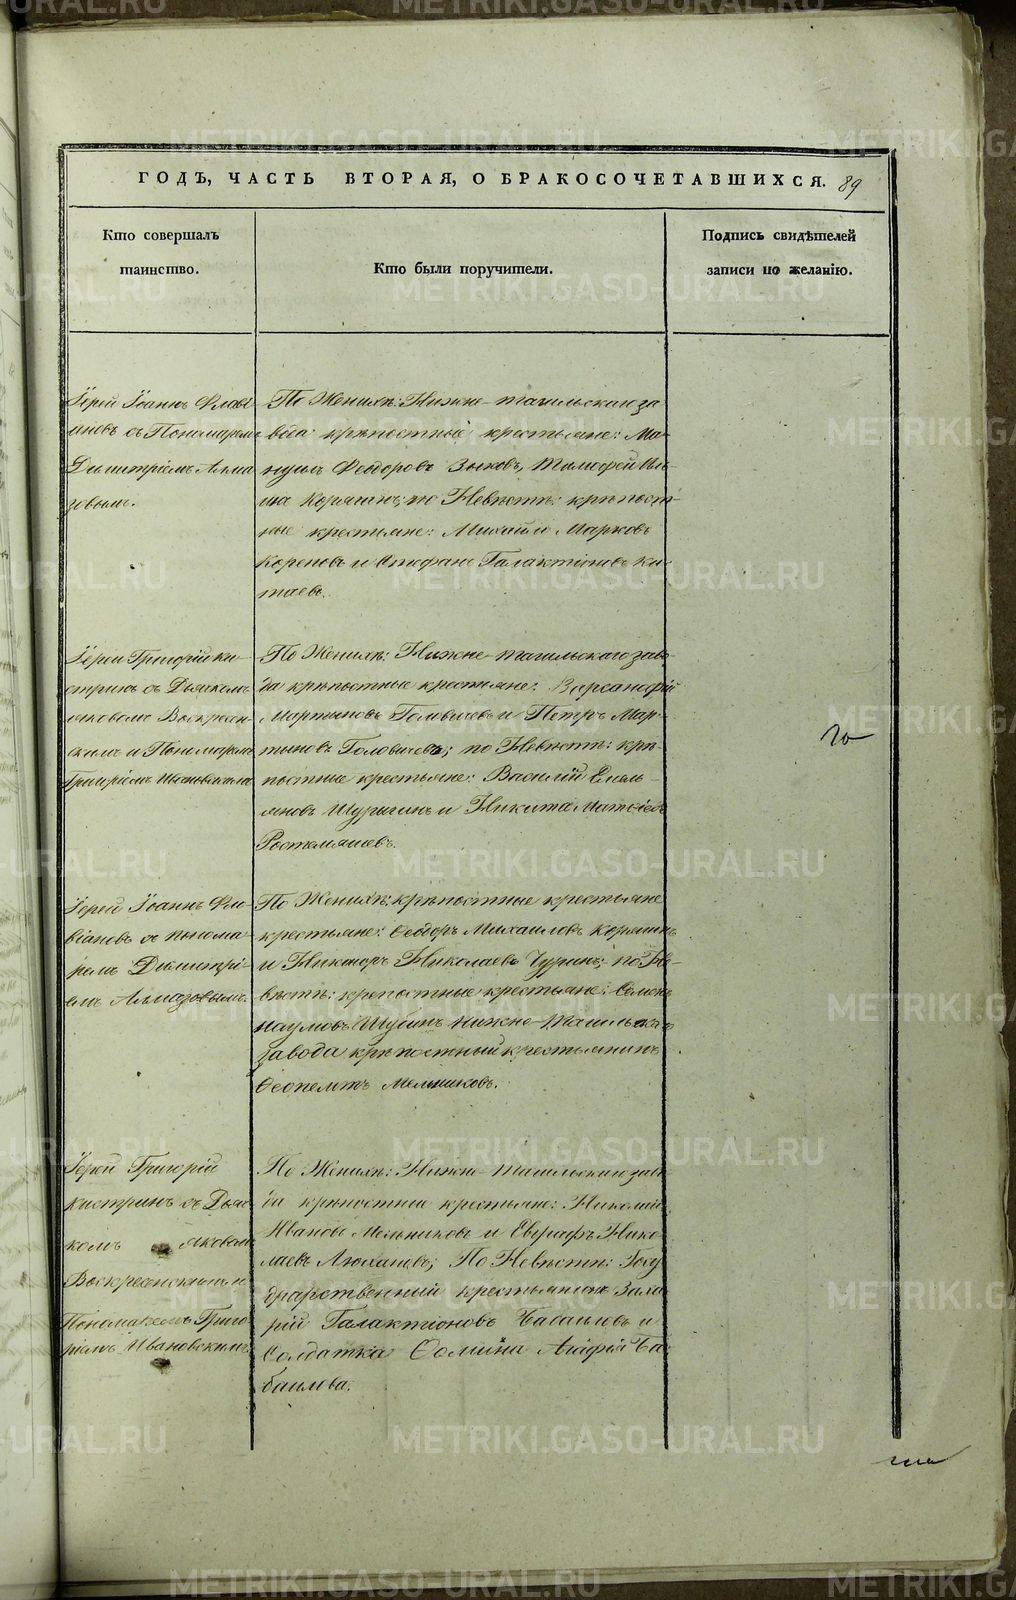 ГОДЪ, ЧАСТЬ ВТОРАЯ, О БРАКОСОЧЕТАВШИХСЯ. 89
Кто совершалъ
таинство.
Кто были поручители.
Подпись свидѣтелей
записи по желанію.
Іерей Іоаннъ Флаві
ановъ съ Пономаремъ
Димитріемъ Алма
зовымъ.
По Женихѣ: Нижне-тагильскаго за
вода крѣпостные крестьяне: Ма-
нуилъ Ѳеодоровъ Зыковъ, Тимофей Иль-
инъ Корякинъ; по Невѣстѣ: крѣпост-
ные крестьяне: Михайло Марковъ
и Стефанъ Галактіоновъ Ки-
таевъ.
Іерей Григорій Ки-
стринъ съ Дьячкомъ
Яковомъ Воскресен-
скимъ и Пономаремъ
Григоріемъ Ивановскимъ
По Женихѣ: Нижне-тагильскаго заво-
да крѣпостные крестьяне: Варсанофій
Мартиновъ Головичевъ и Петръ Мар-
тиновъ Головичевъ; по Невѣстѣ: крѣ-
постные крестьяне: Василій Емель-
яновъ Шурыгинъ и Никита Матвіевъ
Іерей Іоаннъ Фла-
віановъ съ понома-
ремъ Димитрі-
емъ Алмазовымъ.
По Женихѣ: крѣпостные крестьяне
крестьяне: Ѳеодоръ Михаиловъ Корякинъ
и Никаноръ Николаевъ Чуринъ; по Не-
вѣстѣ: крепостные крестьяне: Семенъ
Наумовъ Шубинъ Нижне-Тагильскаго
завода крѣпостный крестьянинъ
Ѳеопемтъ Мельниковъ.
Іерей Григорій
Кистринъ съ Дьяч
комъ Яковомъ
Воскресенскимъ и
Пономаремъ Григо
ріемъ Ивановскимъ
По Женихѣ: Нижне-Тагильскаго заво
да крѣпостные крестьяне: Николай
Ивановъ Мельниковъ и Евграфъ Нико
лаевъ; По Невѣстѣ: Госу
дарственный крестьянинъ Заха
рій Галактіоновъ Бабаиловъ и
Солдатка Ѳомина Агафія Ба
баилова.